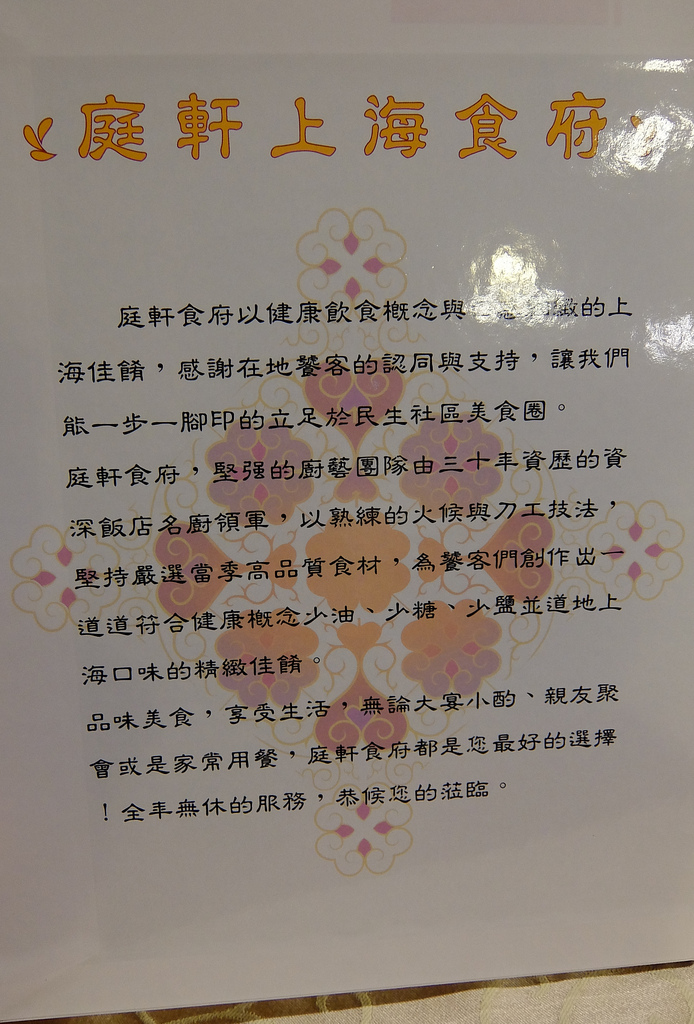 庭軒上海食府
庭軒食府以健康飲食概念與緻的上
海佳餚，感謝在地饕客的認同與支持，讓我們
能一步一腳印的立足於民生社區美食圈。
庭軒食府，堅强的廚藝團隊由三十年資歷的資
深飯店名廚領軍，以熟練的火候與刀工技法，
堅持嚴選當季高品質食材，為饕客們創作出一
道道符合健康概念少油、少糖、少鹽並道地上
海口味的精緻佳餚。
品味美食，享受生活，無論大宴小酌、親友聚
會或是家常用餐，庭軒食府都是您最好的選擇
！全年無休的服務，恭候您的蒞臨。